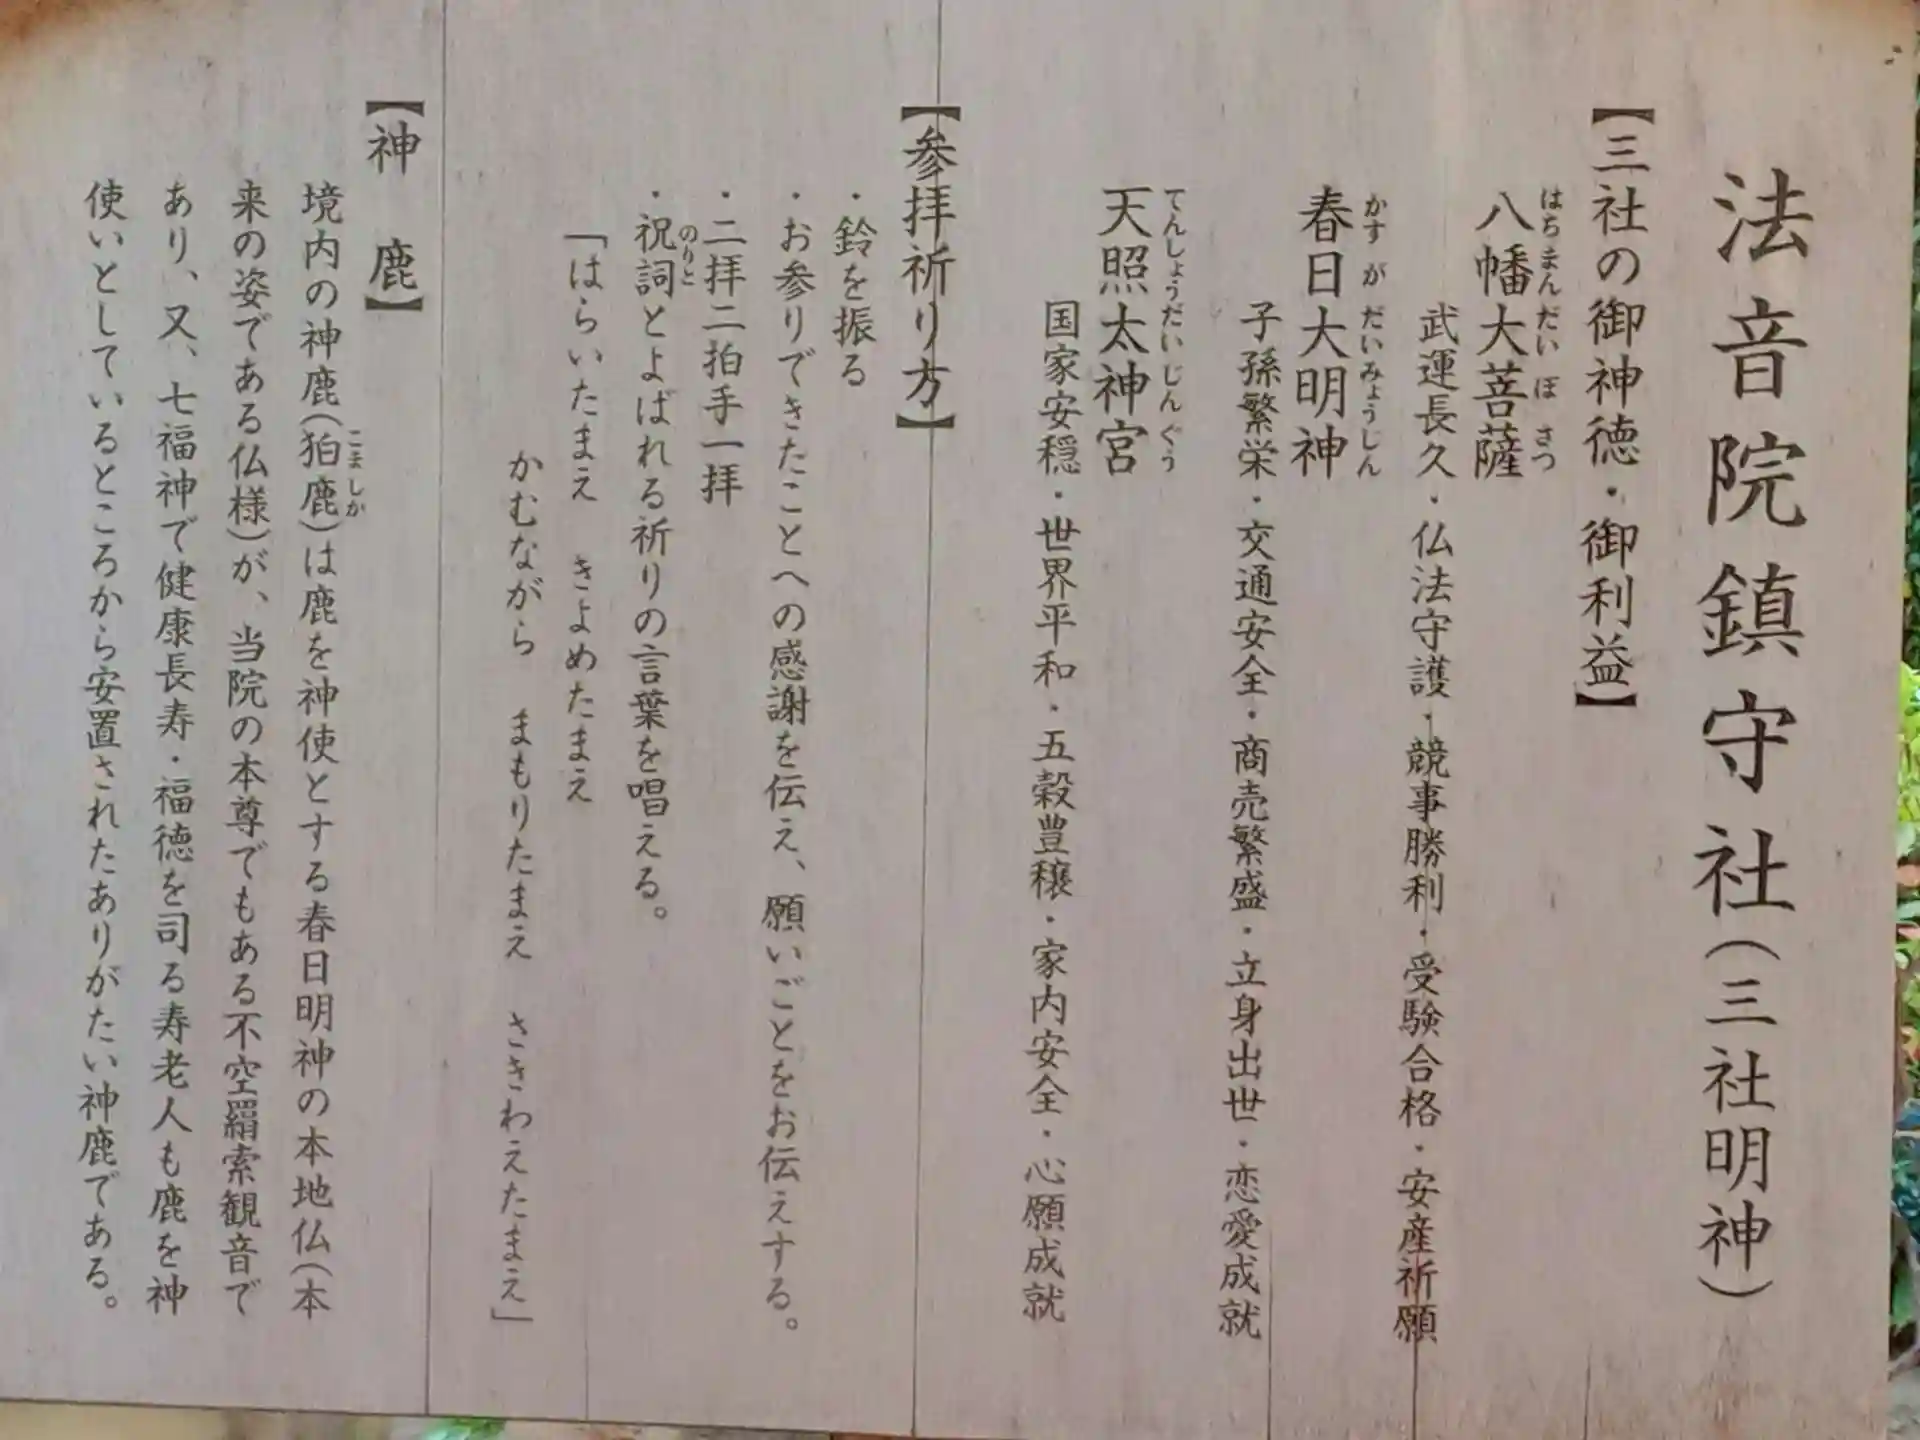 法音院鎮守社(三社明神)
【三社の御神徳・御利益】
八幡大菩薩
はちまんだいぼさつ
武運長久・仏法守護・競事勝利・受験合格・安産祈願
春日大明神
かすがだいみょうじん
子孫繁栄・交通安全・商売繁盛・立身出世・恋愛成就
天照太神宮
てんしょうだいじんぐう
国家安穏・世界平和・五穀豊穣・家内安全・心願成就
【参拝祈り方】
・鈴を振る
・お参りできたことへの感謝を伝え、願いごとをお伝えする。
・二拝二拍手一拝
・祝詞とよばれる祈りの言葉を唱える。
のりと
「はらいたまえ きよめたまえ
かむながら まもりたまえ さきわえたまえ」
【神 鹿】
境内の神鹿(狛鹿)は鹿を神使とする春日明神の本地仏(本
こましか
来の姿である仏様)が、当院の本尊でもある不空羂索観音で
あり、又、七福神で健康長寿・福徳を司る寿老人も鹿を神
使いとしているところから安置されたありがたい神鹿である。